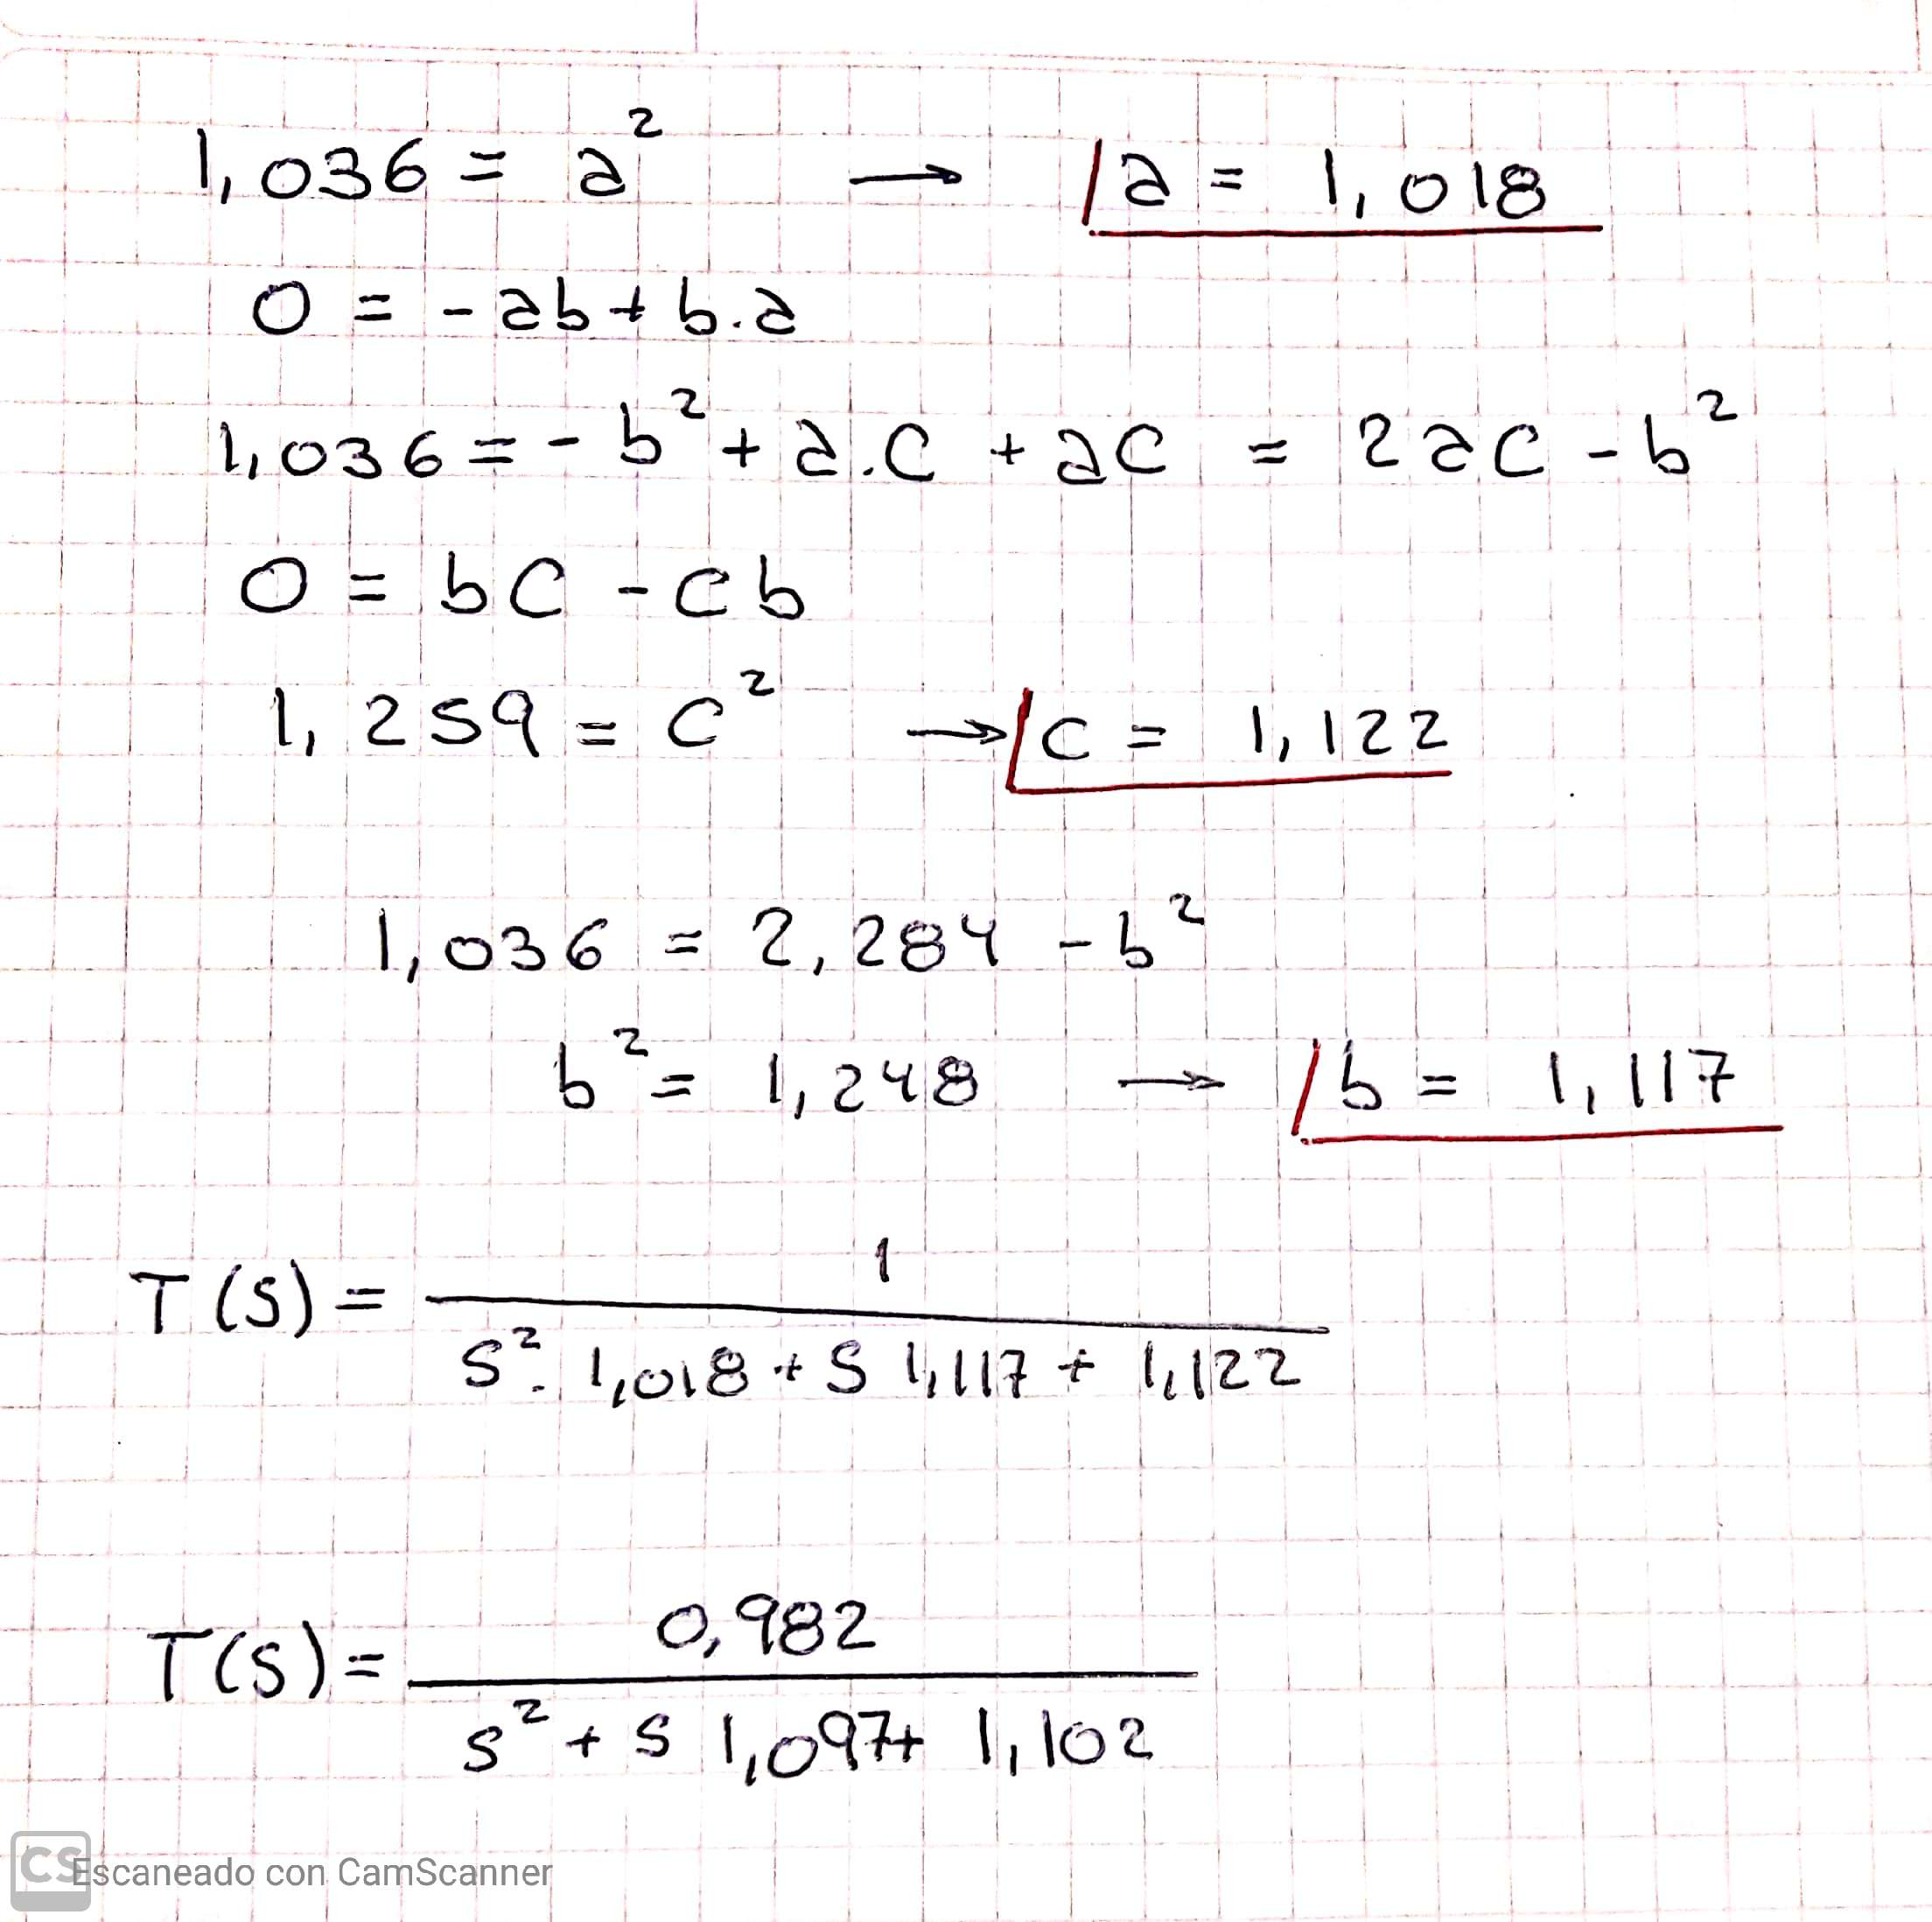 1,036 = a² → a = 1,018
0 = -ab + b.a
1,036 = -b² + a.c + ac = 2ac - b²
0 = bc - cb
1,259 = c² → c = 1,122
1,036 = 2,284 - b²
b² = 1,248 → b = 1,117
1
T(S) =
S². 1,018 + S 1,117 + 1,122
0,982
T(S) =
S² + S 1,097 + 1,102
CS Escaneado con CamScanner